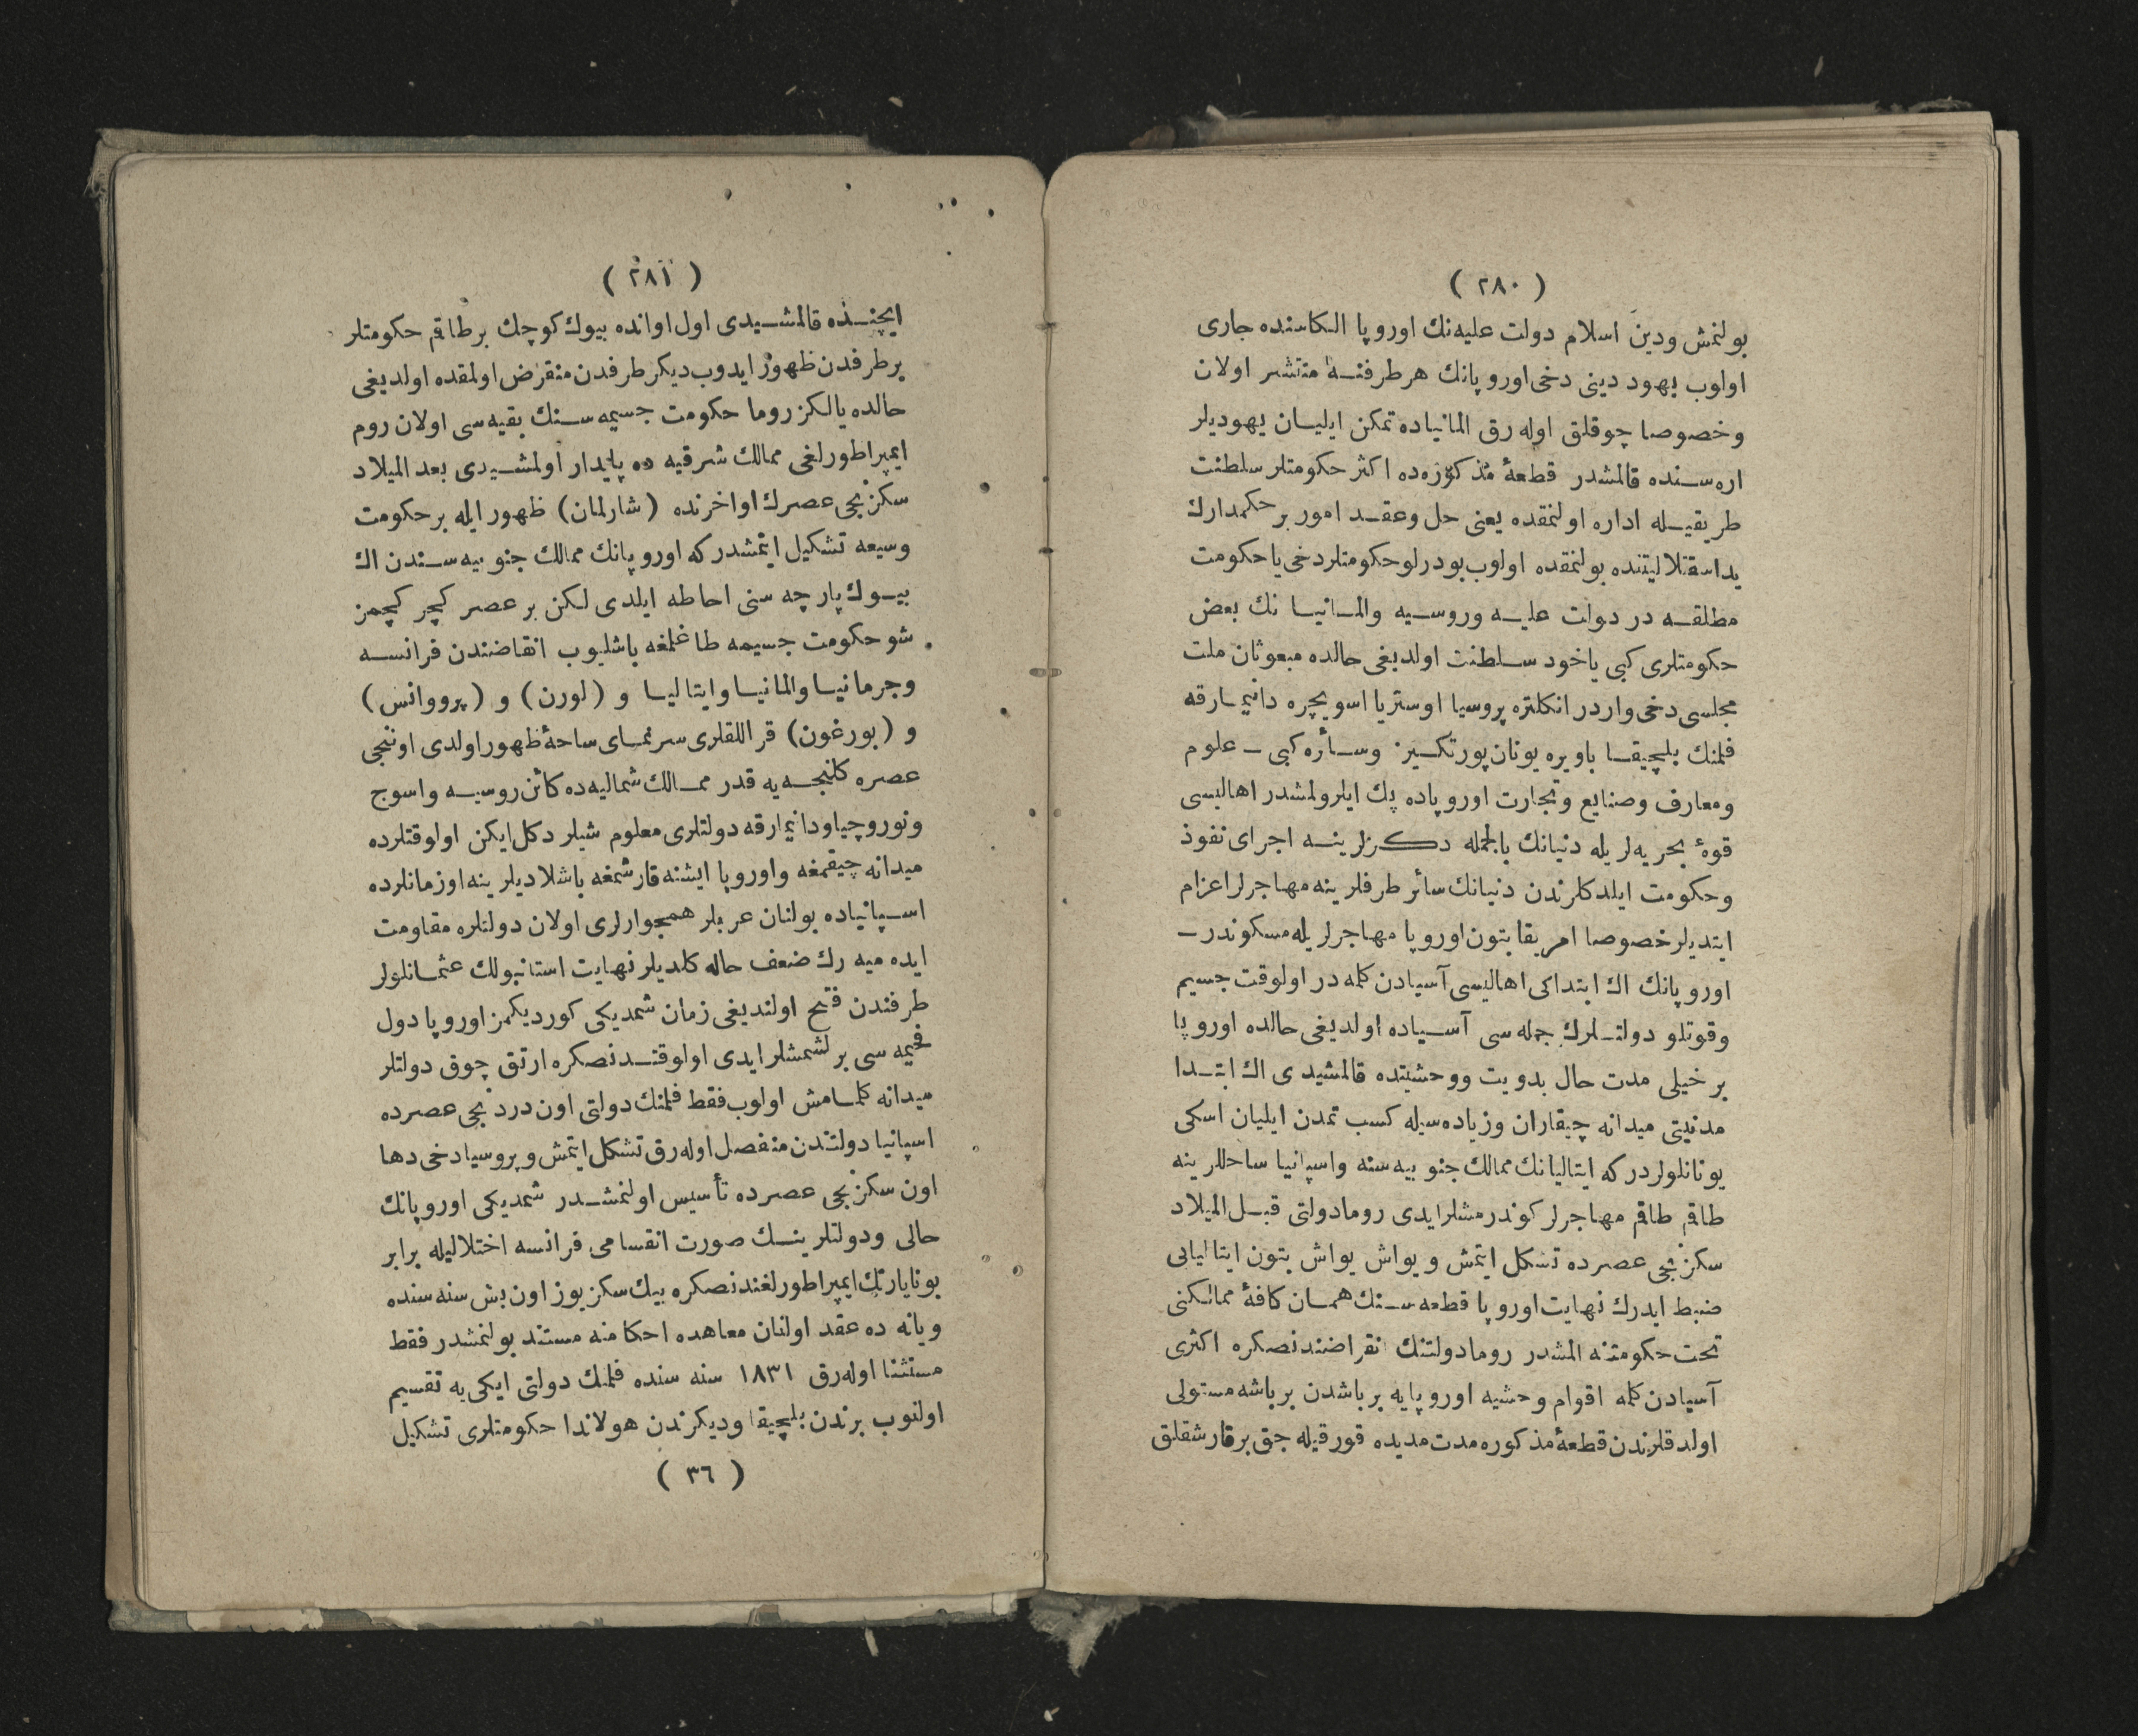 ( ٢٨٠ )
بولنمش ودین اسلام دولت علیه‌نك اوروپا الكاسنده جاری
اولوب یهود دینی دخی اوروپانك هر طرفنه منتشر اولان
وخصوصا چوقلق اوله رق المانیاده تمكن ایلیان یهودیلر
اره سنده قالمشدر قطعهٔ مذكوره‌ده اكثر حكومتلر سلطنت
طریقیله اداره اولنمقده یعنی حل وعقد امور بر حكمدارك
ید استقلالیتنده بولنمقده اولوب بودرلو حكومتلر دخی یا حكومت
مطلقه در دولت علیه وروسیه والمانیا نك بعض
حكومتلری كبی یاخود سلطنت اولدیغی حالده مبعوثان ملت
مجلسی دخی واردر انكلتره پروسیا اوستریا اسویچره دانیمارقه
فلمنك بلچیقا باویره یونان پورتكیز وسائره كبی ـ علوم
ومعارف وصنایع وتجارت اوروپاده پك ایلرولمشدر اهالیسی
قوهٔ بحریه‌لریله دنیانك بالجمله دكزلرینه اجرای نفوذ
وحكومت ایلدكلرندن دنیانك سائر طرفلرینه مهاجرلر اعزام
ایتدیلر خصوصا امریقا بتون اوروپا مهاجرلریله مسكوندر ـ
اوروپانك اك ابتداكی اهالیسی آسیادن كلمه در اولوقت جسیم
وقوتلو دولتلرك جمله سی آسیاده اولدیغی حالده اوروپا
بر خیلی مدت حال بدویت ووحشیتده قالمشیدی اك ابتدا
مدنیتی میدانه چیقاران وزیاده‌سیله كسب تمدن ایلیان اسكی
یونانلولردر كه ایتالیانك ممالك جنوبیه سنه واسپانیا ساحللرینه
طاقم طاقم مهاجرلر كوندرمشلر ایدی روما دولتی قبل المیلاد
سكزنجی عصرده تشكل ایتمش ویواش یواش بتون ایتالیایی
ضبط ایدرك نهایت اوروپا قطعه سنك همان كافهٔ ممالكنی
تحت حكومتنه المشدر روما دولتنك انقراضندنصكره اكثری
آسیادن كلمه اقوام وحشیه اوروپایه بر باشدن بر باشه مستولی
اولدقلرندن قطعهٔ مذكوره مدت مدیده قورقیله جق بر قارشقلق
( ٢٨١ )
ایچنده قالمشیدی اول اوانده بیوك كوچك بر طاقم حكومتلر
بر طرفدن ظهور ایدوب دیكر طرفدن منقرض اولمقده اولدیغی
حالده یالكز روما حكومت جسیمه سنك بقیه سی اولان روم
ایمپراطورلغی ممالك شرقیه ده پایدار اولمشیدی بعد المیلاد
سكزنجی عصرك اواخرنده (شارلمان) ظهور ایله بر حكومت
وسیعه تشكیل ایتمشدر كه اوروپانك ممالك جنوبیه سندن اك
بیوك پارچه سنی احاطه ایلدی لكن بر عصر كچر كچمز
شو حكومت جسیمه طاغلمغه باشلیوب انقاضندن فرانسه
وجرمانیا والمانیا وایتالیا و (لورن) و (پرووانس)
و (بورغون) قراللقلری سرنمای ساحهٔ ظهور اولدی اوننجی
عصره كلنجه یه قدر ممالك شمالیه ده كائن روسیه واسوج
ونوروچیا ودانیمارقه دولتلری معلوم شیلر دكل ایكن اولوقتلرده
میدانه چیقمغه واوروپا ایشنه قارشمغه باشلادیلر ینه اوزمانلرده
اسپانیاده بولنان عربلر همجوارلری اولان دولتلره مقاومت
ایده میه رك ضعف حاله كلدیلر نهایت استانبولك عثمانلولر
طرفندن فتح اولندیغی زمان شمدیكی كوردیكمز اوروپا دول
فخیمه سی برلشمشلر ایدی اولوقتدنصكره ارتق چوق دولتلر
میدانه كلمامش اولوب فقط فلمنك دولتی اون دردنجی عصرده
اسپانیا دولتندن منفصل اوله رق تشكل ایتمش و پروسیا دخی دها
اون سكزنجی عصرده تأسیس اولنمشدر شمدیكی اوروپانك
حالی ودولتلرینك صورت انقسامی فرانسه اختلالیله برابر
بوناپارتك ایمپراطورلغندنصكره بیك سكز یوز اون بش سنه سنده
ویانه ده عقد اولنان معاهده احكامنه مستند بولنمشدر فقط
مستثنا اوله رق ١٨٣١ سنه سنده فلمنك دولتی ایكی یه تقسیم
اولنوب برندن بلچیقا ودیكرندن هولاندا حكومتلری تشكیل
( ٣٦ )